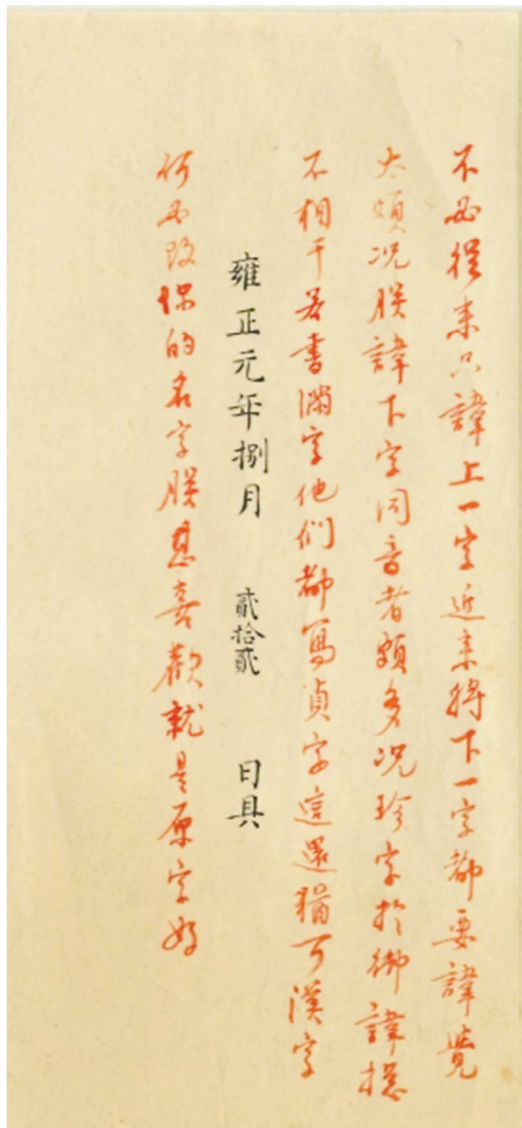 不必從来只諱上一字近来將下一字都要諱覺
太煩况朕諱下字同音者頗多况珍字扵御諱揔
不相干若書滿字他們都写貞字這還猶可漢字
雍正元年捌月 貳拾貳 日具
何必改你的名字朕甚喜歡就是原字好